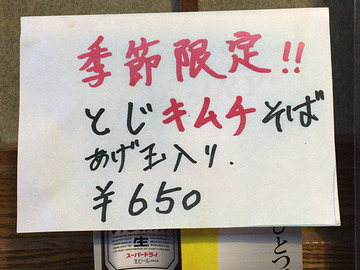 季節限定!!
とじキムチそば
あげ玉入り.
¥650
生
スーパードライ
ひとつ